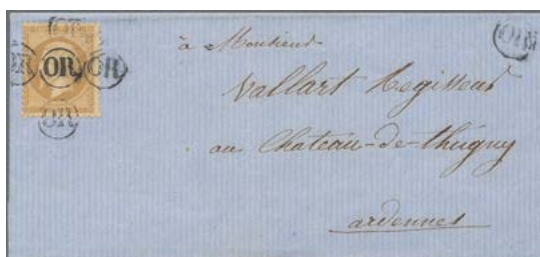 OR
OR OR OR
OR
OR
à Monsieur
Vallart Regisseur
au Chateau-de-thugny
ardennes